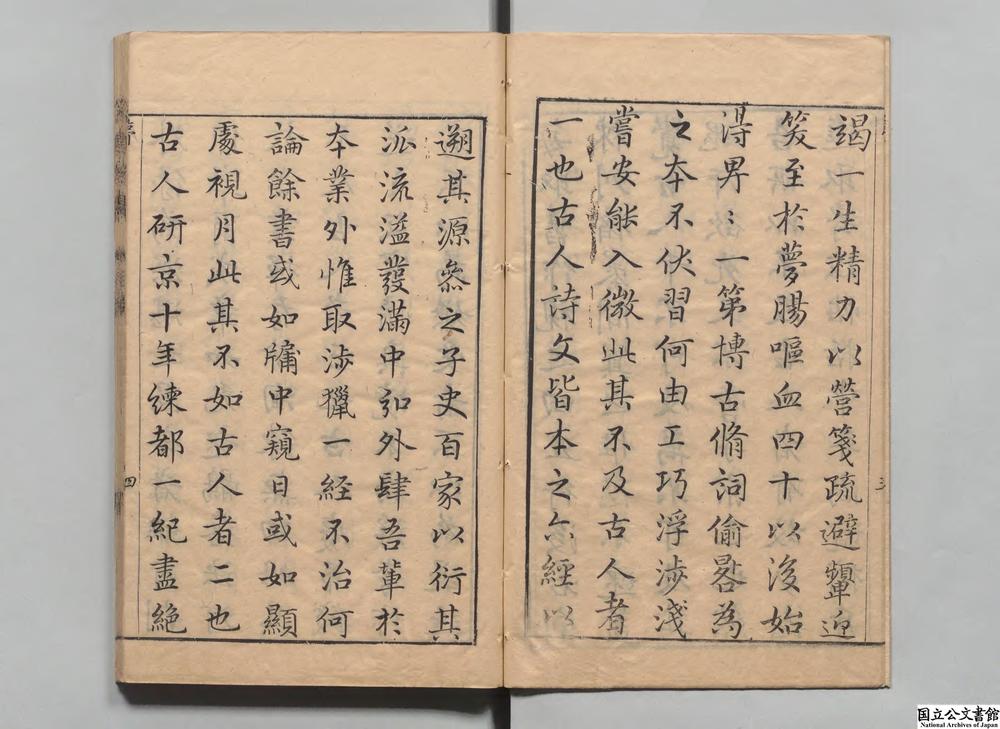 竭一生精力以營箋疏避顰迎
笑至於夢腸嘔血四十以後始
得畀〻一第博古脩詞偷晷為
之本不伏習何由工巧浮涉淺
嘗安能入微此其不及古人者
一也古人詩文皆本之六經以
遡其源參之子史百家以衍其
派流溢發滿中弘外肆吾輩於
本業外惟取涉獵一經不治何
論餘書或如牗中窺日或如顯
處視月此其不如古人者二也
古人研京十年練都一紀盡絕
序
三
四
国立公文書館
National Archives of Japan